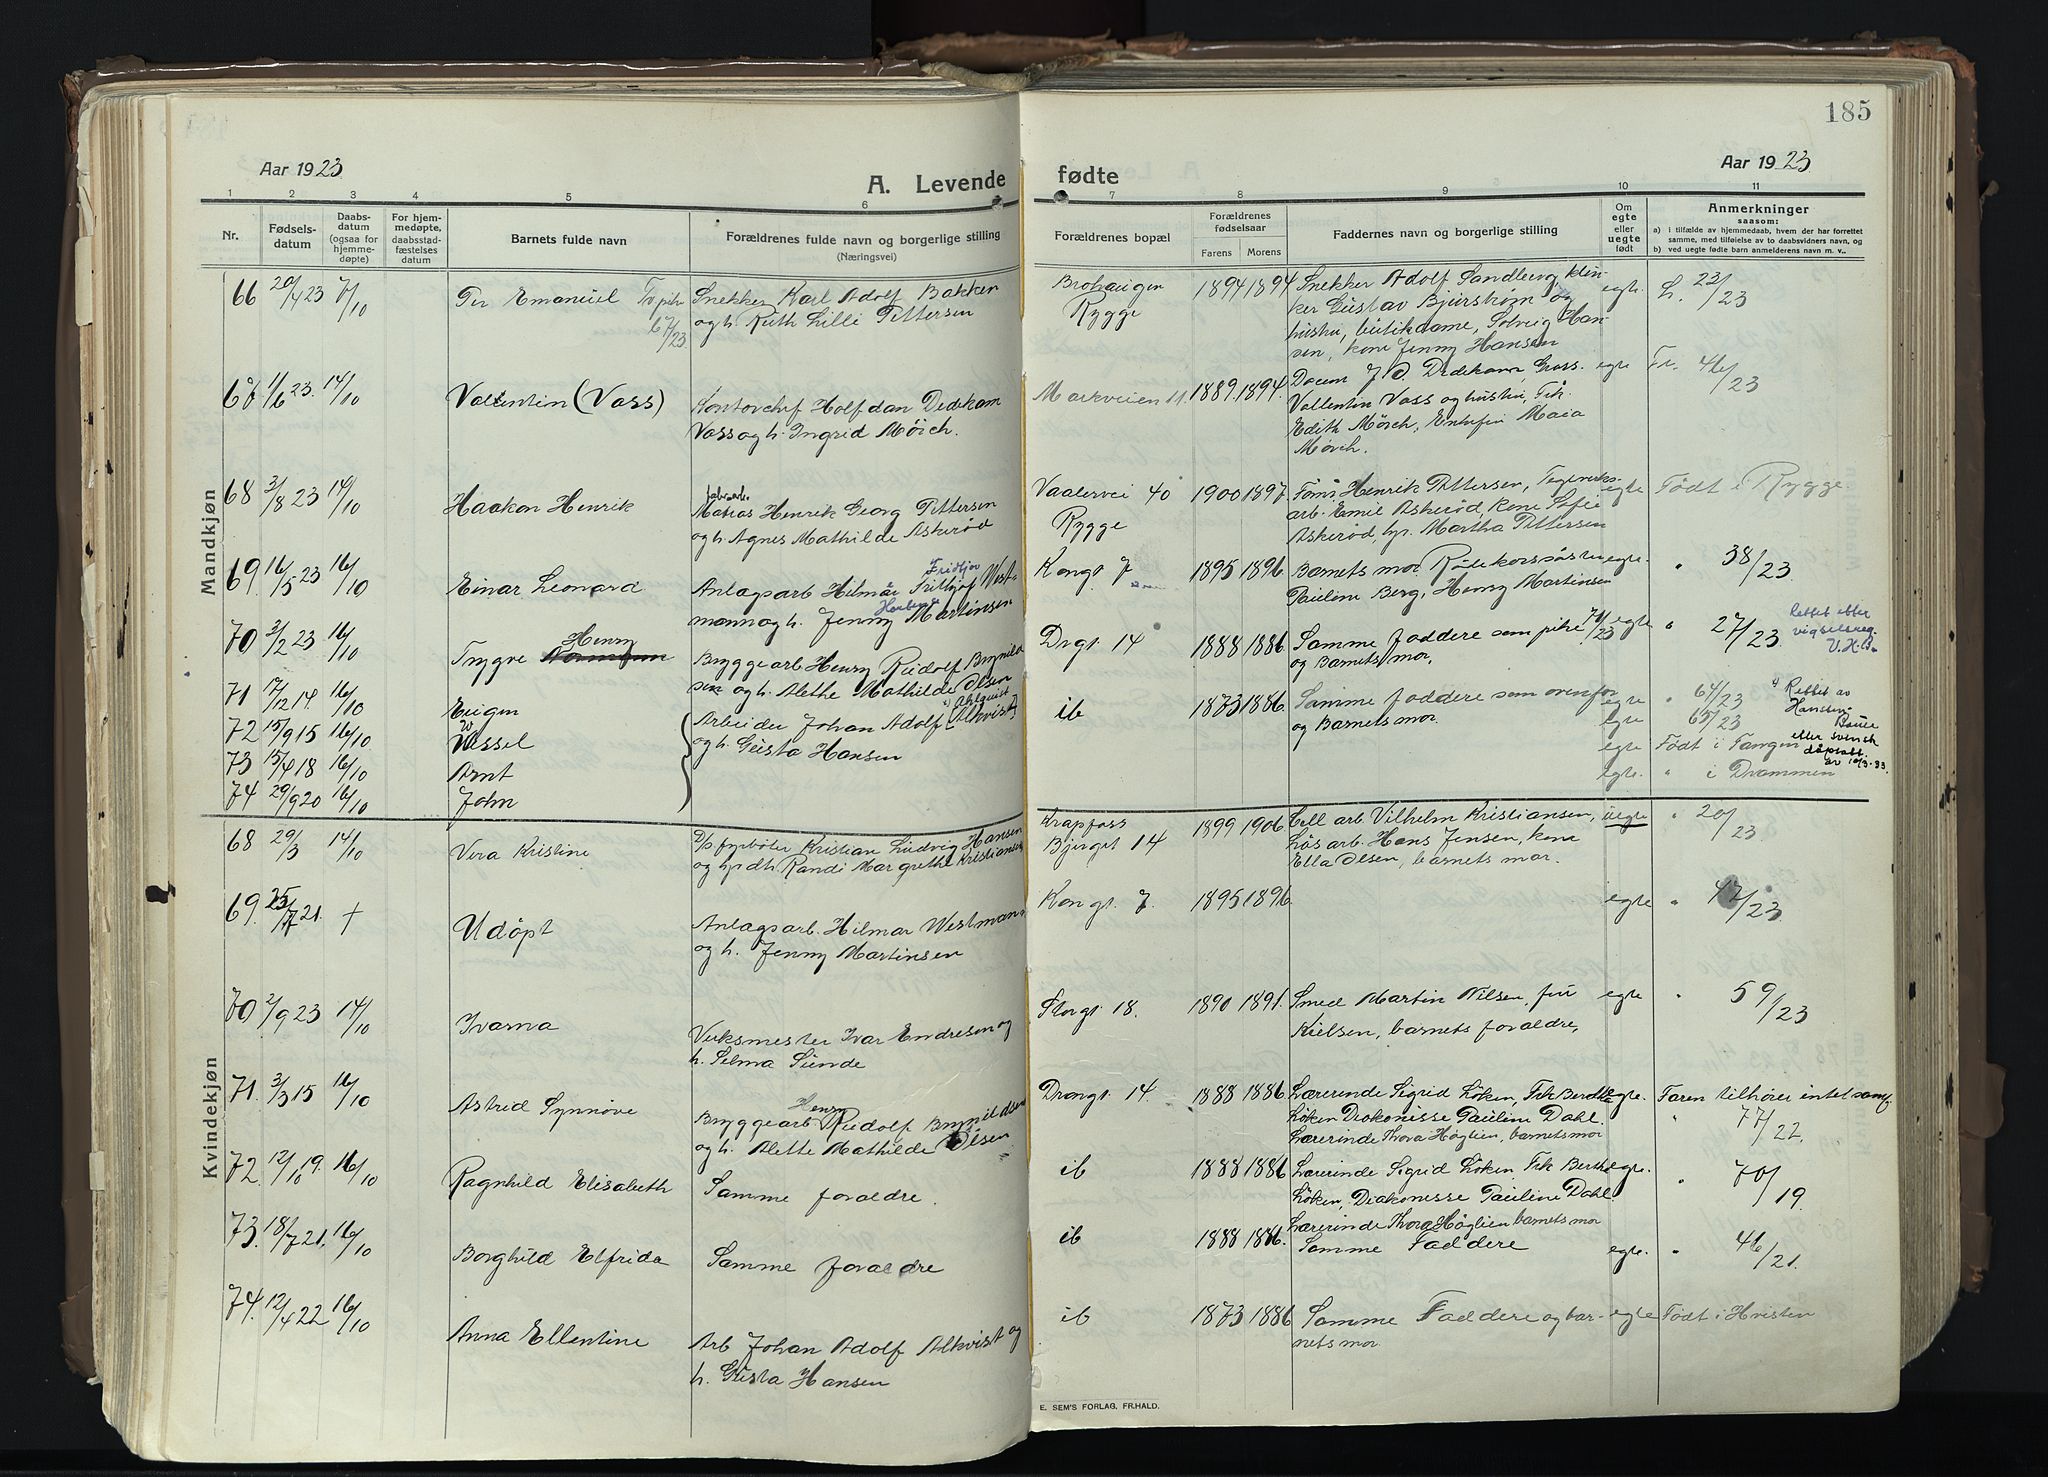 185
Aar 1923
A. Levende
fødte
Aar 1923
1 2 3 4 5 6 7 8 9 10 11
Nr.
Fødsels-
datum
Daabs-
datum
(ogsaa for
hjemme-
døpte)
For hjem-
medøpte,
daabsstad-
fæstelses
datum
Barnets fulde navn
Forældrenes fulde navn og borgerlige stilling
(Næringsvei)
Forældrenes bopæl
Forældrenes
fødselsaar
Farens Morens
Faddernes navn og borgerlige stilling
Om
egte
eller
uegte
født
Anmerkninger
saasom:
a) i tilfælde av hjemmedaab, hvem der har forrettet
samme, med tilføielse av to daabsvidners navn, og
b) ved uegte fødte barn anmelderens navn m. v..
Mandkjøn
66 20/4 23 7/10 Per Emanuel Snekker Karl Adolf Bakken Brohaugen 1894 1894 Snekker Adolf Sandberg, klin- egte. L. 23/23
67/23 og h. Ruth Lilli Pettersen Rygge ker Gustav Bjurstrøm og
hustru, butikdame, Solveig Han-
sen, kone Jenny Hansen
68 11/6 23. 14/10 Vallentin (Vass) Kontorchef Halfdan Dedekam Markveien 11. 1889. 1894. Docem J. D. Dedekam, Gross. egte Fr. 46/23
Vass og h. Ingrid Mørch. Vallentin Vass og hustru, Frk.
Edith Mørch, Enkefru Maia
Mørch.
68 3/8 23 14/10 Haakon Henrik Matias Henrik Georg Pettersen Vaalervei 40 1900 1897. Henrik Pettersen, Teglverks- egte Født i Rygge.
og h. Agnes Mathilde Askerød Rygge arb. Emil Askerød, kone Sofie
Askerød, Martha Pettersen
69. 16/5 23 16/10 Einar Leonard Anlagsarb Hilmar Fritjof West- Kongs. 7 1895 1896 Barnets mor. Røde korssøster egte. " 38/23.
Fridtjov
mann og h. Jenny Martinsen Pauline Berg, Henny Martinsen
70 3/2 23 16/10 Trygve Henry Bryggearb Henry Rudolf Brynild- Drgt 14 1888 1886. Samme faddere som pike 71/23 egte " 27/23. Rettet efter
vigselsreg.
sen og h. Alethe Mathilde Olsen og Barnets mor.
71 17/12 14. 16/10 Eugen Arbeider Johan Adolf [Alkvist] ib 1873 1886. Samme faddere som ovenfor egte " 64/23 Rettet av
Ahlquist
72 15/9 15 16/10 Wessel og h. Gusta Hansen og Barnets mor. egte 65/23
73 15/4 18 16/10 Arnt egte Født i Tangen
eller svensk
dåpsatt.
74 29/9 20 16/10 John egte. " i Drammen
Kvindekjøn
68 29/3 14/10 Vera Kristine D/S fyrbøter Kristian Ludvig Hansen Krapfoss 1899 1906. Cell arb Vilhelm Kristiansen, uegte " 20/23
og Randi Margrethe Kristiansen Bjerget 14 Løsarb. Hans Jensen, kone
Ella Olsen, barnets mor.
69. 25/7 21. + Udøpt Anlagsarb. Hilmar Westmann Kongs. 7. 1895 1896. egte " 47/23.
og h. Jenny Martinsen
70 2/9 23 14/10 Ivarna Verksmester Ivar Endresen og Storgt 18. 1890 1891. Smed Martin Nilsen, fru egte " 59/23
h. Selma Sunde Nielsen, barnets forældre,
71. 3/3 15 16/10 Astrid Synnøve Bryggearb. Henry Rudolf Brynildsen Drongt 14. 1888 1886. Lærerinde Sigrid Løken, Frk Bertha egte. Faren tilhører intet samf.
og h. Alette Mathilde Olsen Løken Diakonisse Pauline Dahl. " 77/22.
Lærerinde Thora Høglien, barnets mor
72 12/10 19. 16/10 Ragnhild Elisabeth Samme forældre. ib 1888 1886 Lærerinde Sigrid Løken Frk Bertha egte. " 70/19.
Løken, Diakonesse Pauline Dahl.
Lærerinde Thora Høglien barnets mor
73. 18/7 21. 16/10 Borghild Elfrida Samme forældre ib 1888 1886. Samme Faddere egte. " 46/21.
74. 12/4 22 16/10 Anna Ellentine Arb Johan Adolf Alkvist og ib 1873 1886 Samme Faddere og bar- egte Født i Hvitsten
h. Gusta Hansen nets mor.
E. SEM'S FORLAG, FR.HALD.